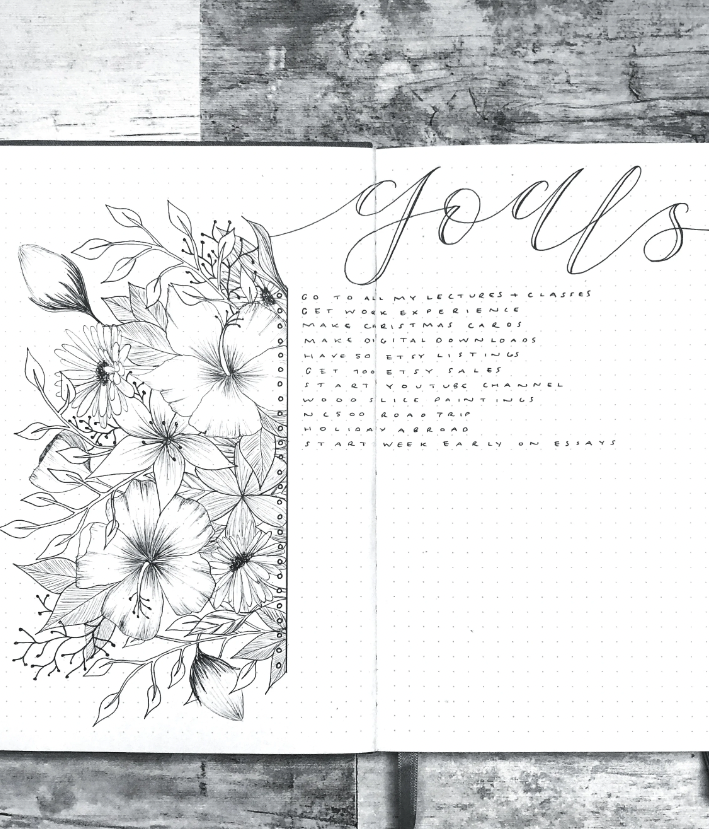 goals
GO TO ALL MY LECTURES + CLASSES
GET WORK EXPERIENCE
MAKE CHRISTMAS CARDS
MAKE DIGITAL DOWNLOADS
HAVE 50 ETSY LISTINGS
GET 700 ETSY SALES
START YOUTUBE CHANNEL
WOOD SLICE PAINTINGS
NC500 ROAD TRIP
HOLIDAY ABROAD
START WEEK EARLY ON ESSAYS